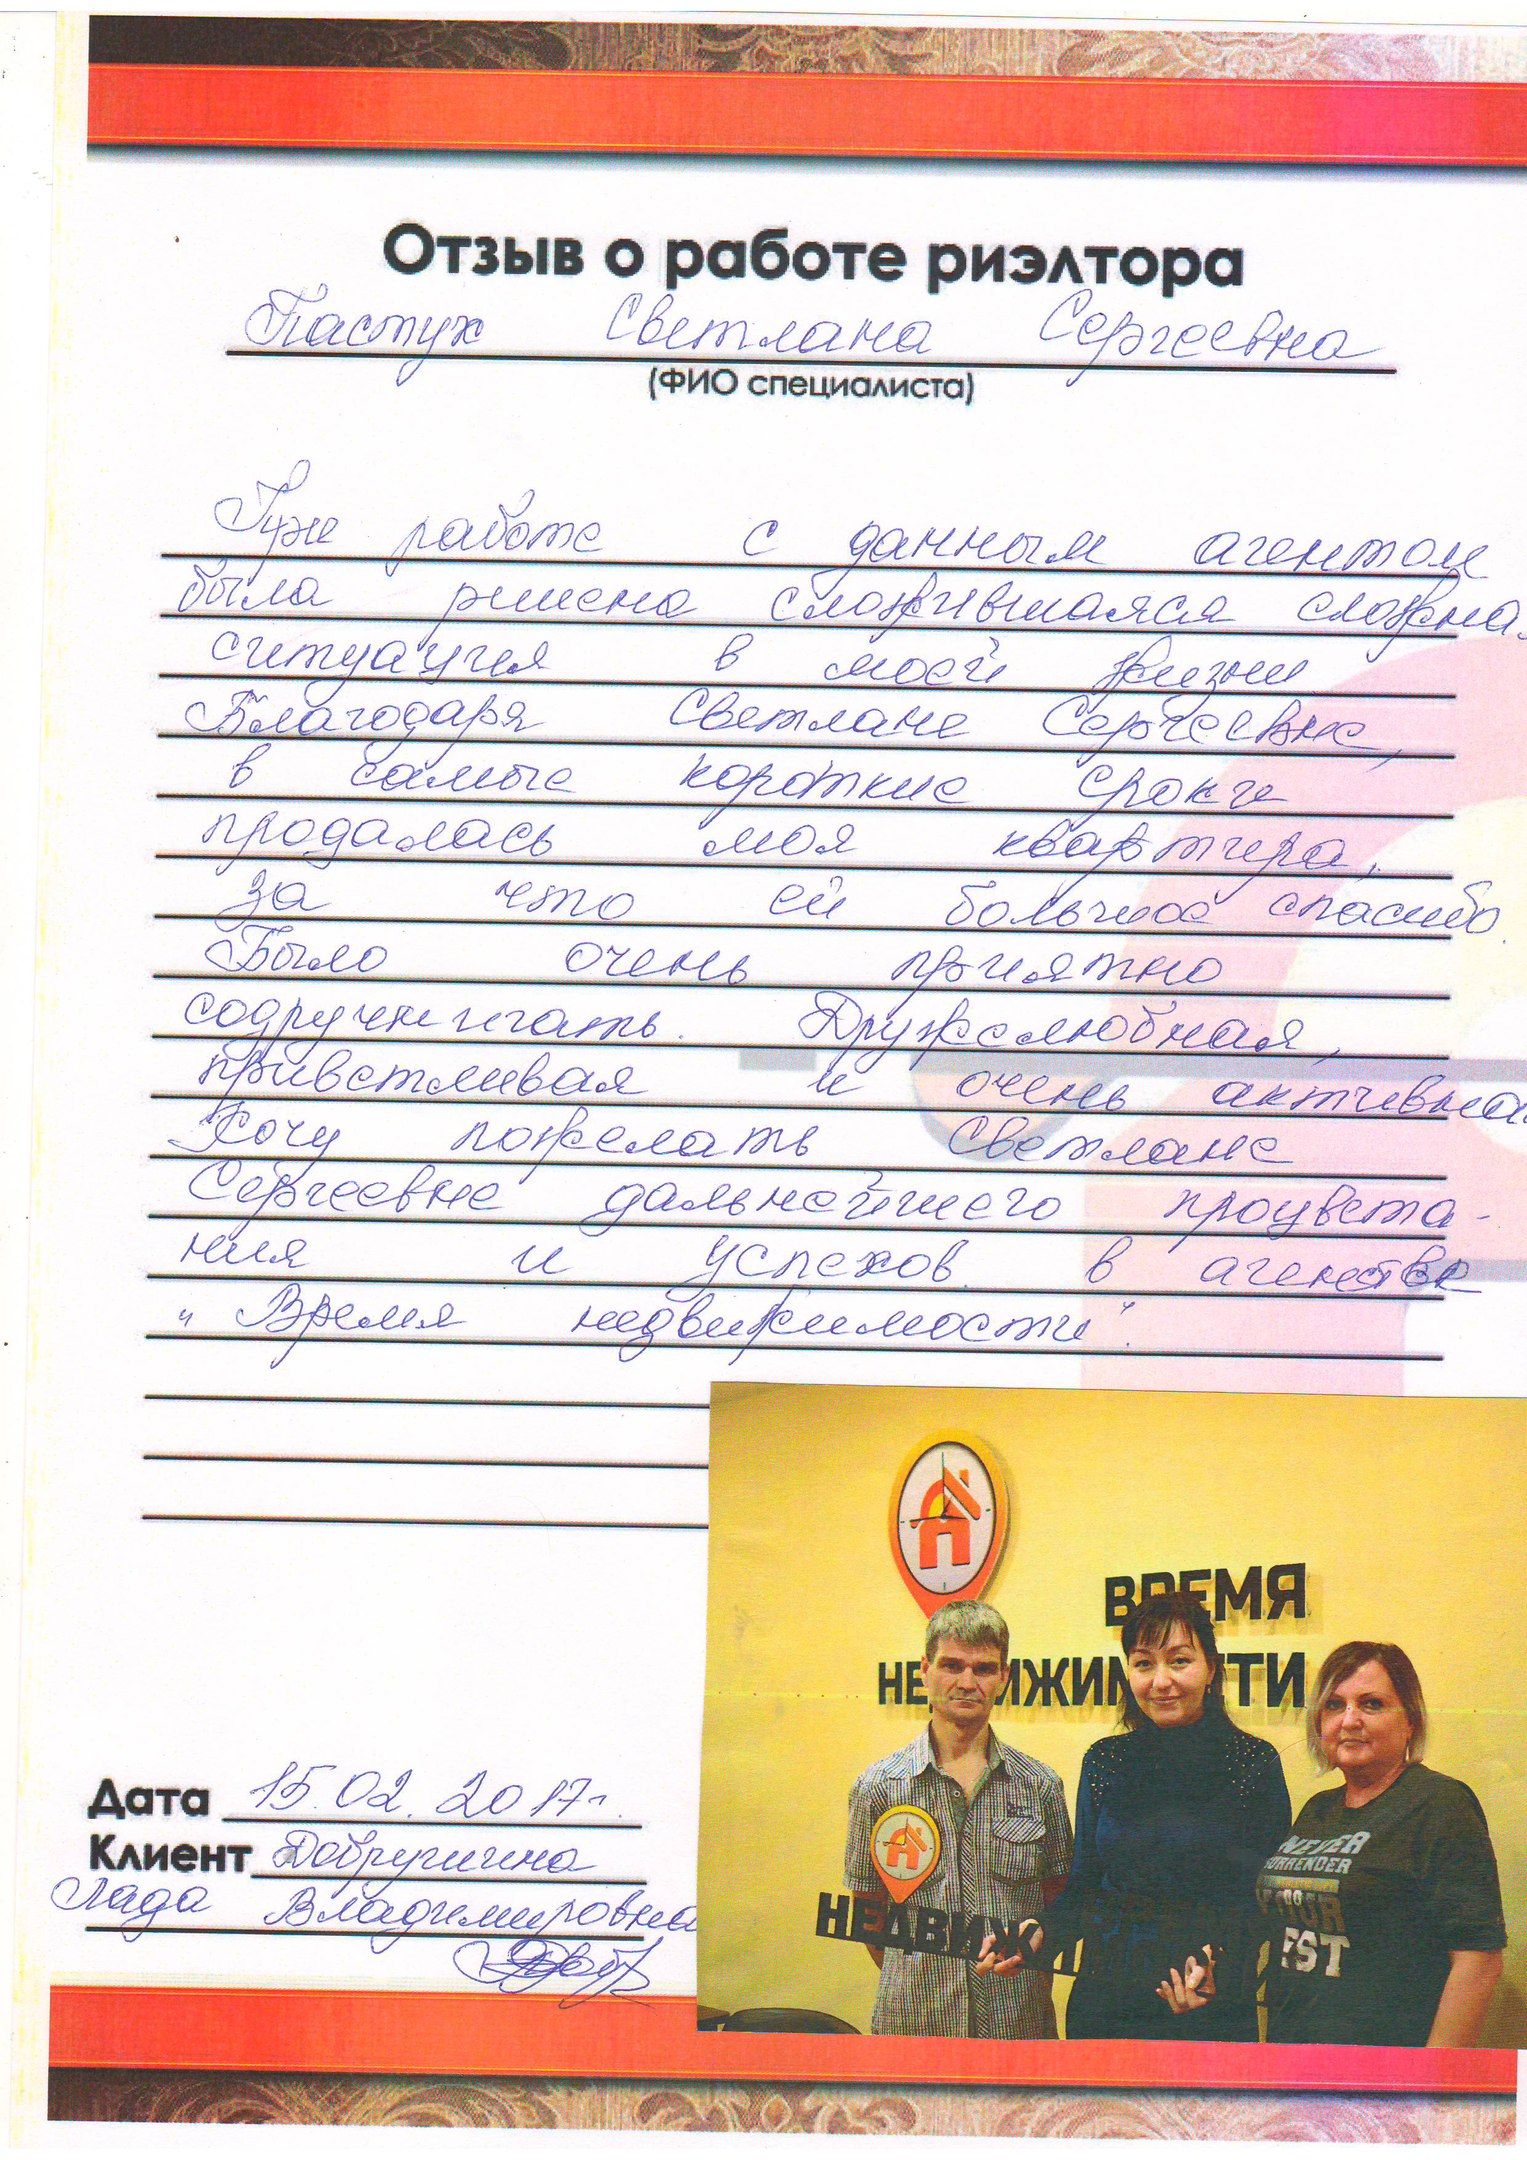 Отзыв о работе риэлтора
Пастух Светлана Сергеевна
(ФИО специалиста)
При работе с данным агентом
была решена сложившаяся сложная
ситуация в моей жизни
Благодаря Светлане Сергеевне,
в самые короткие сроки
продалась моя квартира,
за что ей большое спасибо.
Было очень приятно
Дружелюбная,
приветливая и очень активная
Хочу пожелать Светлане
Сергеевне дальнейшего процвета-
ния и успехов в агенстве
"Время недвижимости".
ВРЕМЯ
НЕДВИЖИМОСТИ
НЕДВИЖИ
NEVER
SURRENDER
EST
Дата 15.02.2017г.
Клиент Добрушина
Лада Владимировна